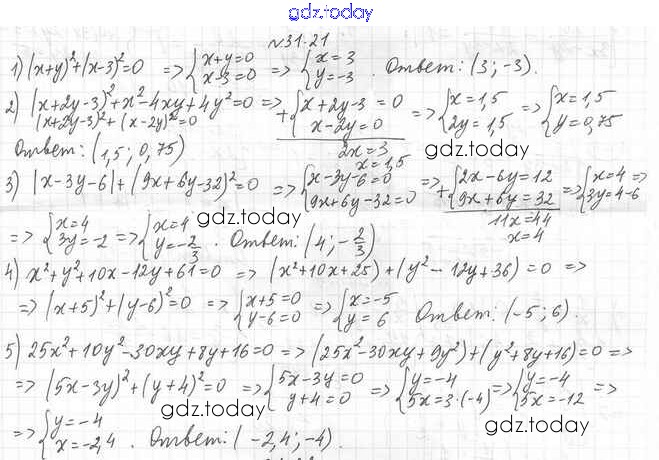 gdz.today
№31.21
1) (x+y)²+(x-3)²=0 => {x+y=0 x-3=0 => {x=3 y=-3 . Ответ: (3; -3).
2) (x+2y-3)²+x²-4xy+4y²=0 => + {x+2y-3=0 x-2y=0 => {x=1,5 2y=1,5 => {x=1,5 y=0,75
(x+2y-3)²+(x-2y)²=0
2x=3
x=1,5
Ответ: (1,5; 0,75)
gdz.today
3) |x-3y-6|+(9x+6y-32)²=0 => {x-3y-6=0 9x+6y-32=0 => + {2x-6y=12 9x+6y=32 => {x=4 3y=4-6 =>
11x=44
x=4
gdz.today
=> {x=4 3y=-2 => {x=4 y=-2/3 . Ответ: (4; -2/3)
4) x²+y²+10x-12y+61=0 => (x²+10x+25)+(y²-12y+36)=0 =>
=> (x+5)²+(y-6)²=0 => {x+5=0 y-6=0 => {x=-5 y=6 Ответ: (-5; 6).
5) 25x²+10y²-30xy+8y+16=0 => (25x²-30xy+9y²)+(y²+8y+16)=0 =>
=> (5x-3y)²+(y+4)²=0 => {5x-3y=0 y+4=0 => {y=-4 5x=3·(-4) => {y=-4 5x=-12 =>
gdz.today
gdz.today
=> {y=-4 x=-2,4 . Ответ: (-2,4; -4).